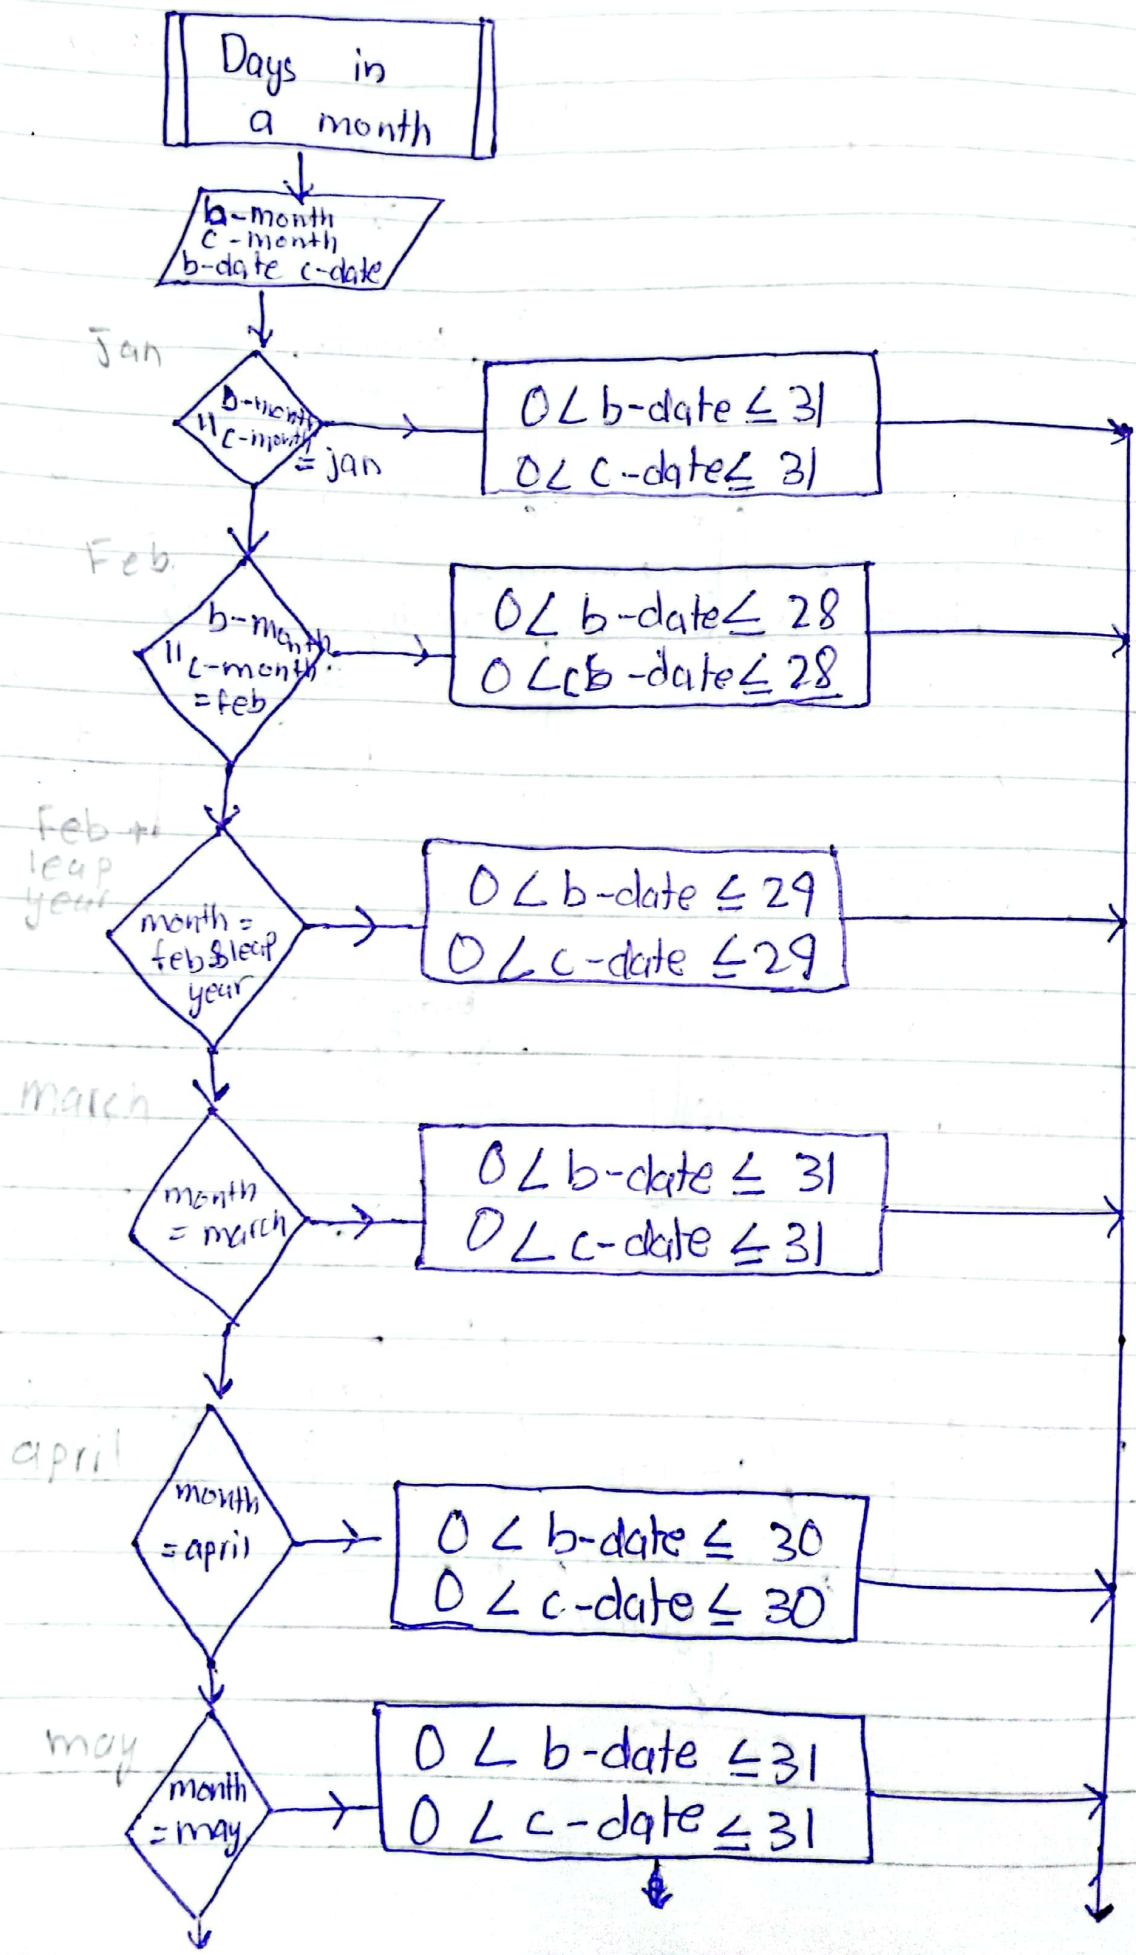 Days in
a month
b-month
c-month
b-date c-date
Jan
b-month
|| c-month
= jan
0 < b-date ≤ 31
0 < c-date ≤ 31
Feb.
b-month
|| c-month
= feb
0 < b-date ≤ 28
0 < cb-date ≤ 28
Feb +
leap
year
month =
feb & leap
year
0 < b-date ≤ 29
0 < c-date ≤ 29
march
month
= march
0 < b-date ≤ 31
0 < c-date ≤ 31
april
month
= april
0 < b-date ≤ 30
0 < c-date ≤ 30
may
month
= may
0 < b-date ≤ 31
0 < c-date ≤ 31